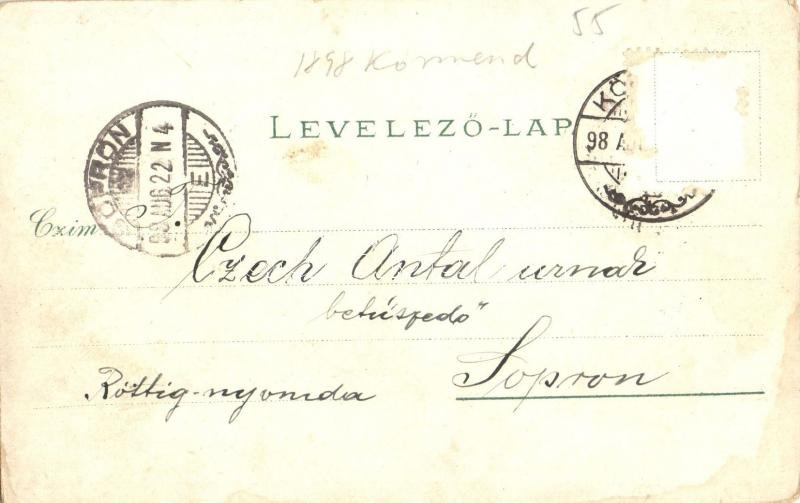 55
1898 Körmend
LEVELEZŐ-LAP
SOPRON
98 AUG 22 N 4
E
KÖ
98 AU
Czim
Czech Antal urnak
betűszedő
Röttig-nyomda
Sopron